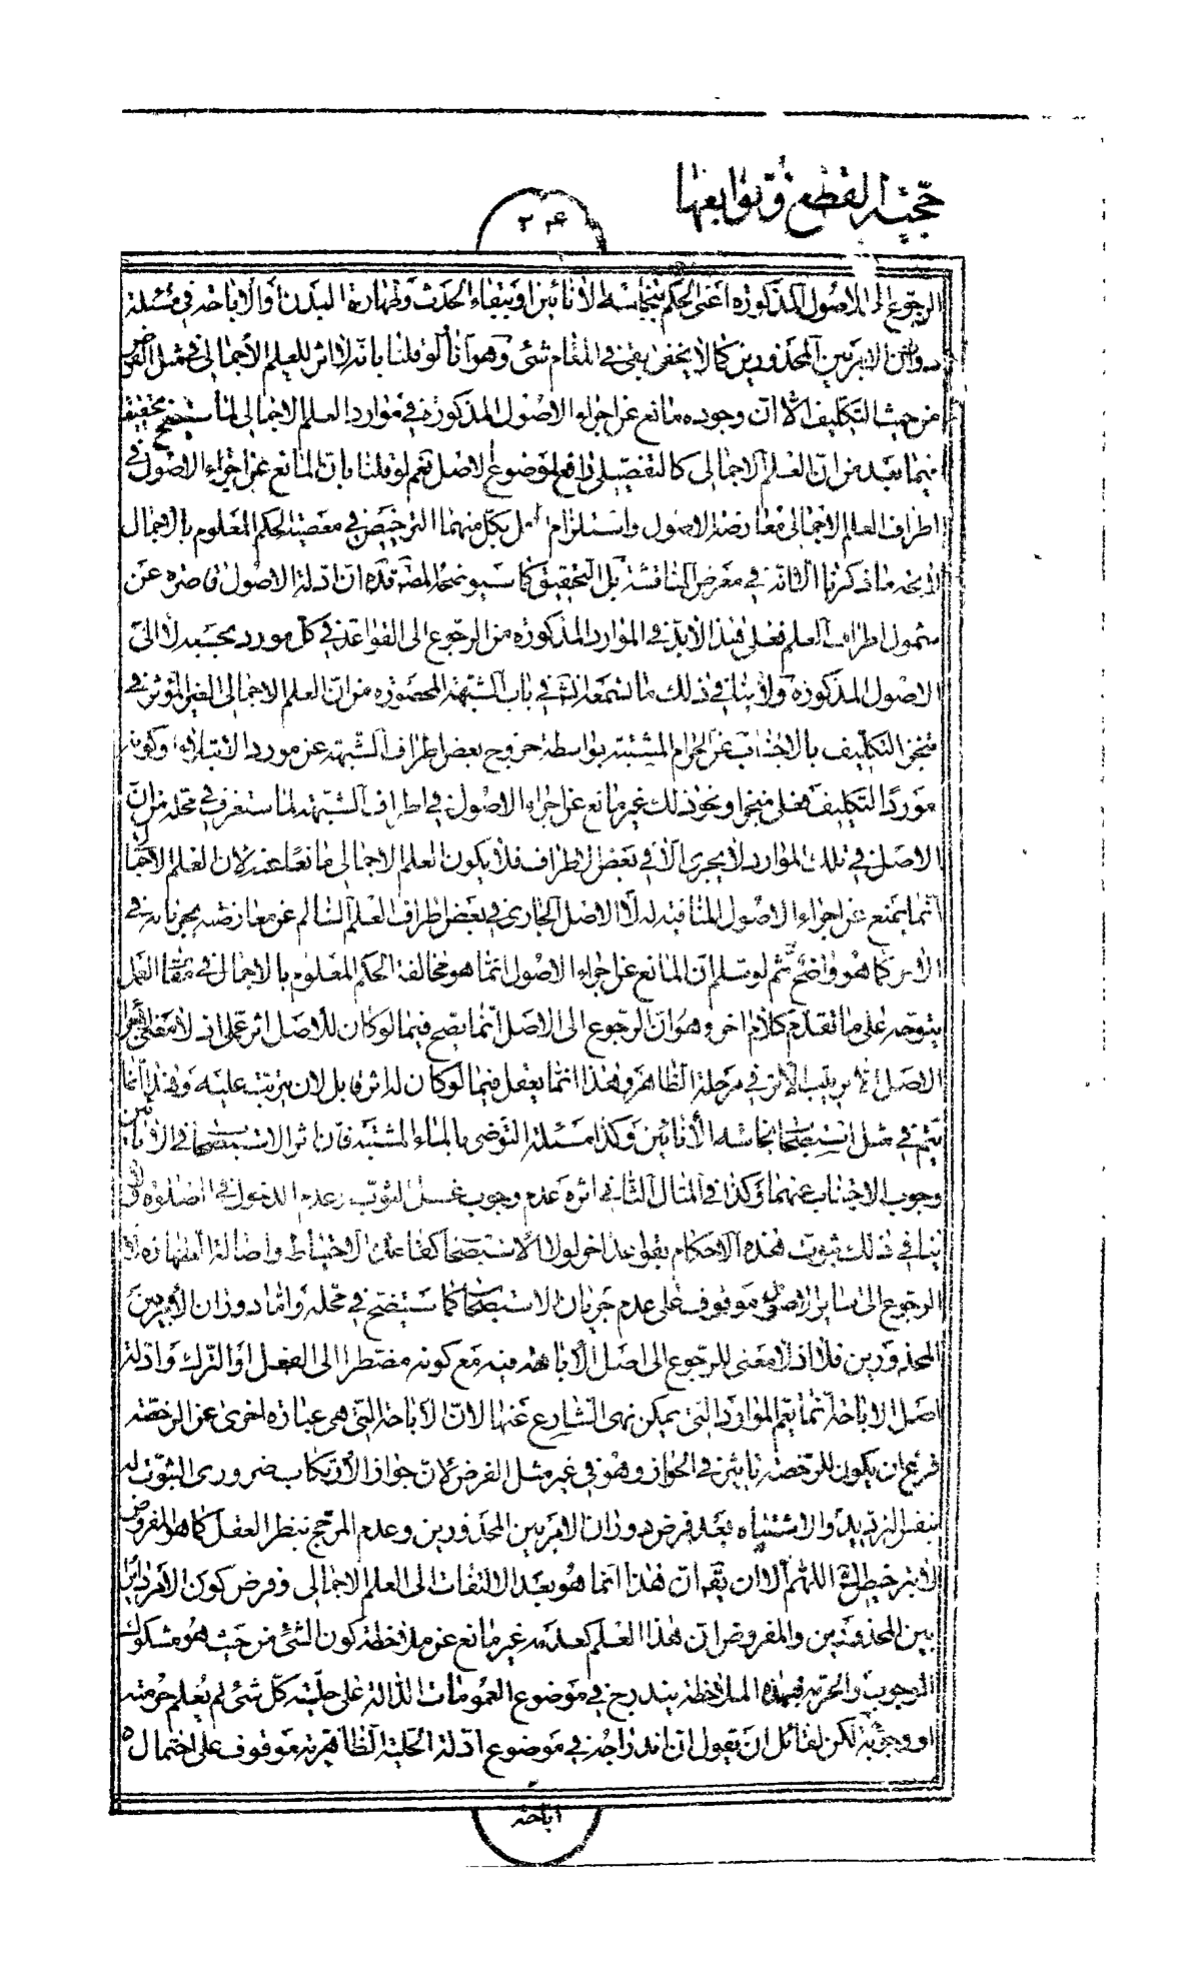 حجية القطع وتوابعها
٢۴
الرجوع الى الاصول المذكورة اعنى الحكم بنجاسة الانائين او ببقاء الحدث وطهارة البدن او الاباحة فى مسئلة
دوران الامر بين المحذورين كما لا يخفى بقى فى المقام شئ وهو انا لو قلنا بانه لا اثر للعلم الاجمالى فى مثل الفرض
من حيث التكليف الا ان وجوده مانع عن اجراء الاصول المذكورة فى موارد العلم الاجمالى لما سيتضح تحقيقه
فيما بعد من ان العلم الاجمالى كالتفصيلى رافع لموضوع الاصل نعم لو قلنا بان المانع عن اجراء الاصول فى
اطراف العلم الاجمالى معارضة الاصول واستلزام العمل بكل منهما الترخيص فى معصية الحكم المعلوم بالاجمال
لاتجه ما ذكر الا انه فى معرض المناقشة بل التحقيق كما سيوضحه المصنف قده ان ادلة الاصول قاصرة عن
شمول اطراف العلم فعلى هذا لابد فى الموارد المذكورة من الرجوع الى القواعد فى كل مورد بحسبه لا الى
الاصول المذكورة ولا ينافى ذلك ما تسمعه فى باب الشبهة المحصورة من ان العلم الاجمالى الغير المؤثر فى
تنجز التكليف بالاجتناب عن الحرام المشتبه بواسطة خروج بعض اطراف الشبهة عن مورد الابتلاء او كونه
موردا لتكليف فعلى منجز او نحو ذلك غير مانع عن اجراء الاصول فى اطراف الشبهة لما ستعرف فى محله من ان
الاصل فى تلك الموارد لا يجرى الا فى بعض الاطراف فلا يكون العلم الاجمالى مانعا عنه لان العلم الاجمالى
انما يمنع عن اجراء الاصول المنافية له لا الاصل الجارى فى بعض اطراف العلم السالم عن معارضته بجريانه فى
الاخر كما هو واضح ثم لو سلم ان المانع عن اجراء الاصول انما هو مخالفة الحكم المعلوم بالاجمال فى مقام العمل
يتوجه على ما تقدم كلام اخر وهو ان الرجوع الى الاصل انما يصح فيما لو كان للاصل اثر عملى اذ لا معنى لاجراء
الاصل الا ترتيب الاثر فى مرحلة الظاهر وهذا انما يعقل فيما لو كان له اثر قابل لان يترتب عليه وهذا انما
يتم فى مثل استصحاب نجاسة الانائين وكذا مسئلة التوضى بالماء المشتبه فان اثر الاستصحاب فى الانائين
وجوب الاجتناب عنهما وكذا فى المثال الثانى اثره عدم وجوب غسل الثوب وعدم الدخول فى الصلوة ولا
ينافى ذلك ثبوت هذه الاحكام بقواعد اخر لولا الاستصحاب كقاعدة الاحتياط واصالة الطهارة لان
الرجوع الى سائر الاصول موقوف على عدم جريان الاستصحاب كما سيتضح فى محله واما دوران الامر بين
المحذورين فلا اذ لا معنى للرجوع الى اصل الاباحة فيه مع كونه مضطرا الى الفعل او الترك وادلة
اصل الاباحة انما تعم الموارد التى يمكن نهى الشارع عنها لان الاباحة التى هى عبارة اخرى عن الرخصة
فرع ان يكون للرخصة تاثير فى الجواز وهو فى غير مثل الفرض لان جواز الارتكاب ضرورى الثبوت له
بنفس الترديد والاشتباه بعد فرض دوران الامر بين المحذورين وعدم المرجح بنظر العقل كما هو المفروض
لا بترخيص الشارع اللهم الا ان يقال ان هذا انما هو بعد الالتفات الى العلم الاجمالى وفرض كون الامر دائرا
بين المحذورين والمفروض ان هذا العلم كعدمه غير مانع عن ملاحظة كون الشئ من حيث هو مشكوك
الوجوب والحرمة فبهذه الملاحظة يندرج فى موضوع العمومات الدالة على حلية كل شئ لم يعلم حرمته
او وجوبه لكن لقائل ان يقول ان اندراجه فى موضوع ادلة الحلية الظاهرية موقوف على احتمال
اباحته